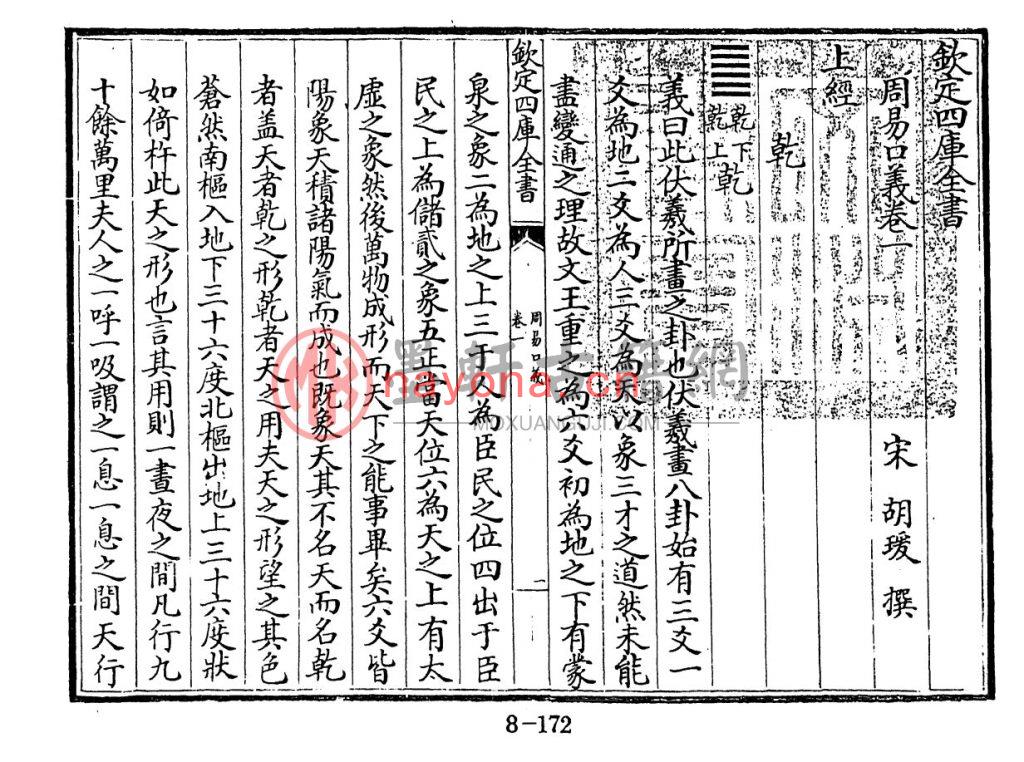 欽定四庫全書
周易口義卷一
宋 胡瑗 撰
上經
乾
乾下乾上
乾
義曰此伏羲所畫之卦也伏羲畫八卦始有三爻一
爻為地二爻為人三爻為天以象三才之道然未能
盡變通之理故文王重之為六爻初為地之下有蒙
欽定四庫全書
周易口義
卷一
一
泉之象二為地之上三于人為臣民之位四出于臣
民之上為儲貳之象五正當天位六為天之上有太
虛之象然後萬物成形而天下之能事畢矣六爻皆
陽象天積諸陽氣而成也既象天其不名天而名乾
者盖天者乾之形乾者天之用夫天之形望之其色
蒼然南樞入地下三十六度北樞出地上三十六度狀
如倚杵此天之形也言其用則一晝夜之間凡行九
十餘萬里夫人之一呼一吸謂之一息一息之間天行
墨軒古籍網
nayona.cn
MOXUANGUJI.COM
8-172